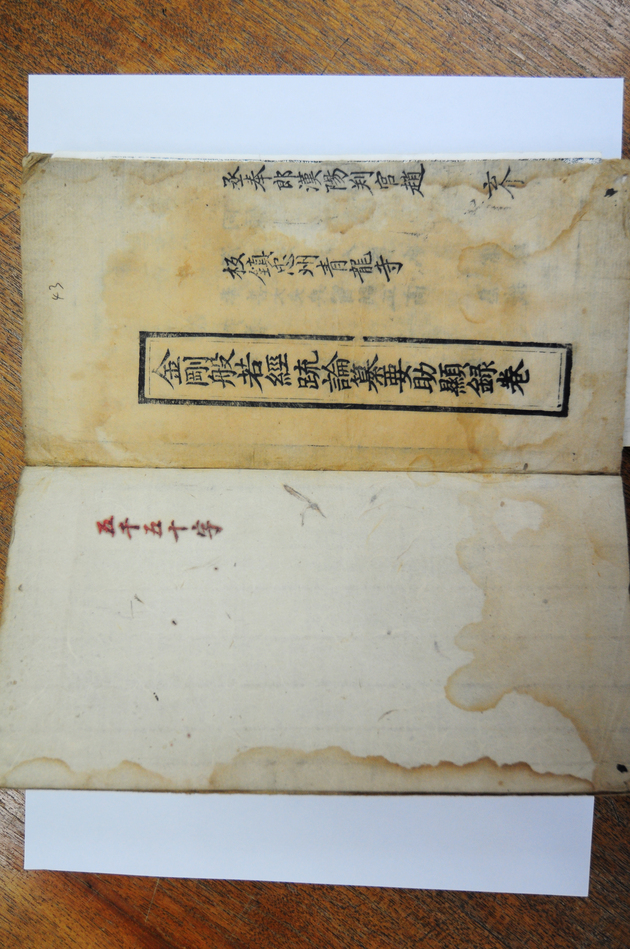 丞奉郎漢陽判官趙
板鎮忠州青龍寺
43
金剛般若經䟽論纂要助顯録卷
五千五十字